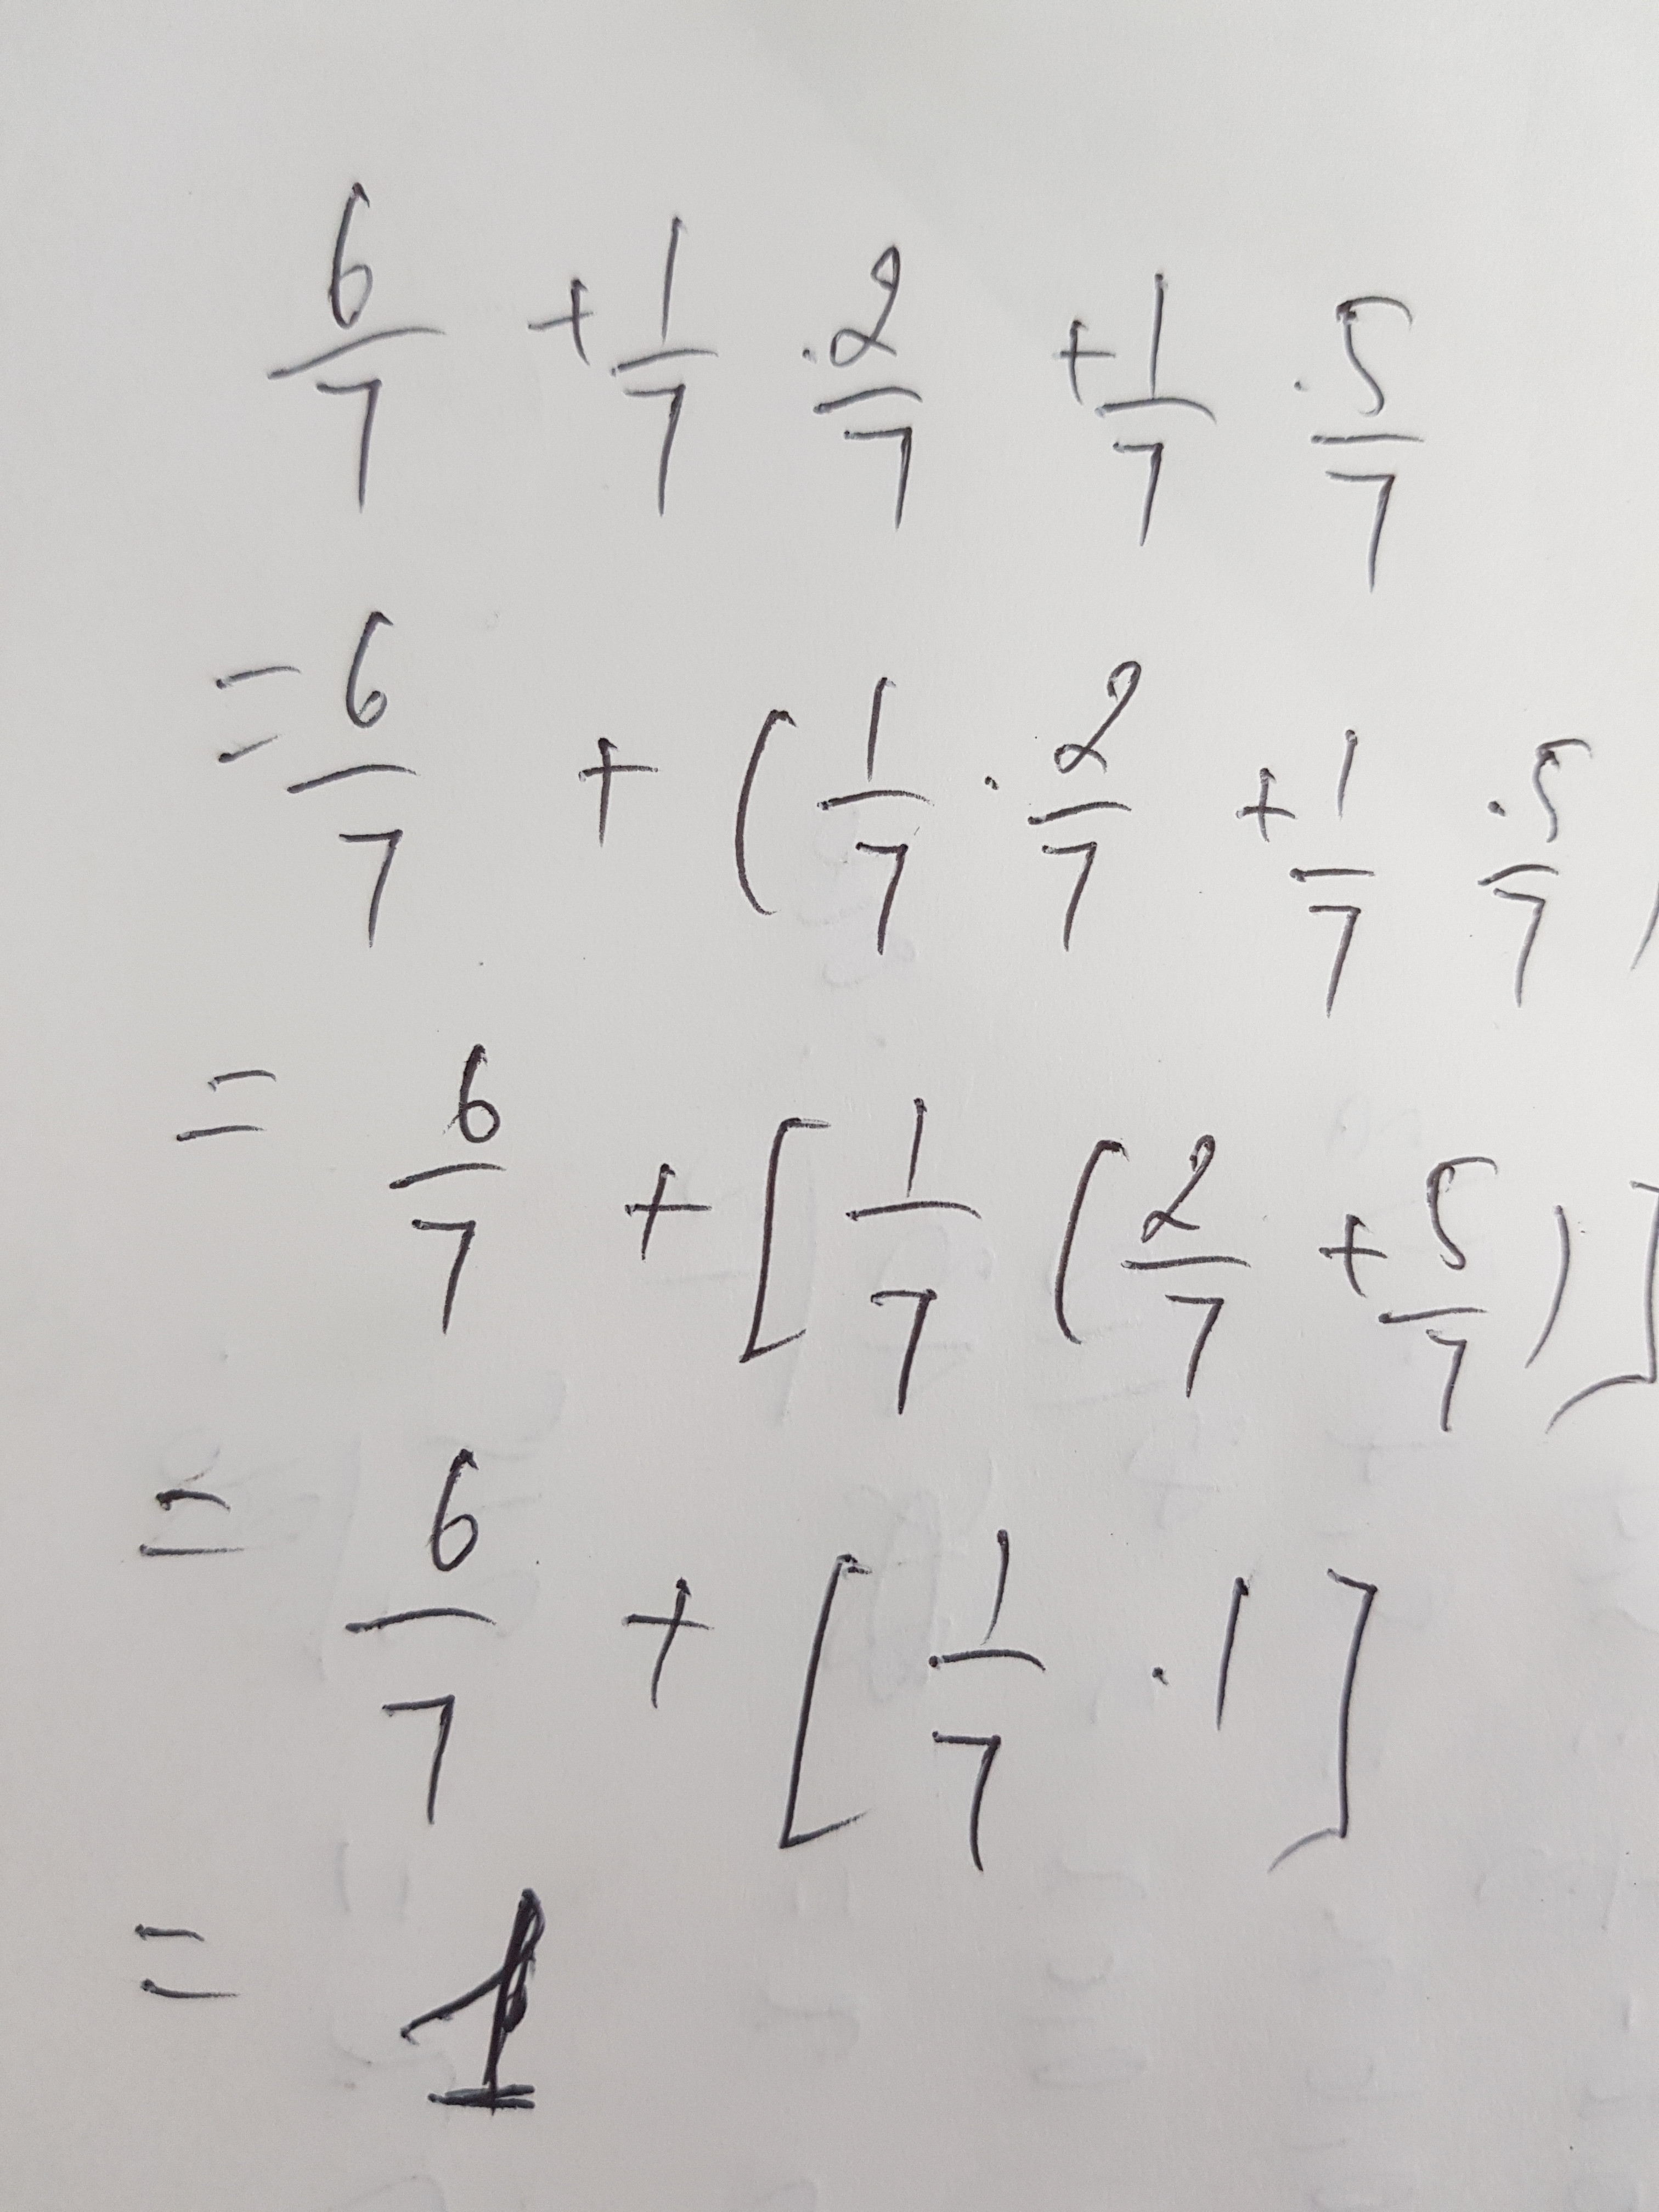 6/7 + 1/7 . 2/7 + 1/7 . 5/7
= 6/7 + (1/7 . 2/7 + 1/7 . 5/7)
= 6/7 + [1/7 (2/7 + 5/7)]
= 6/7 + [1/7 . 1]
= 1